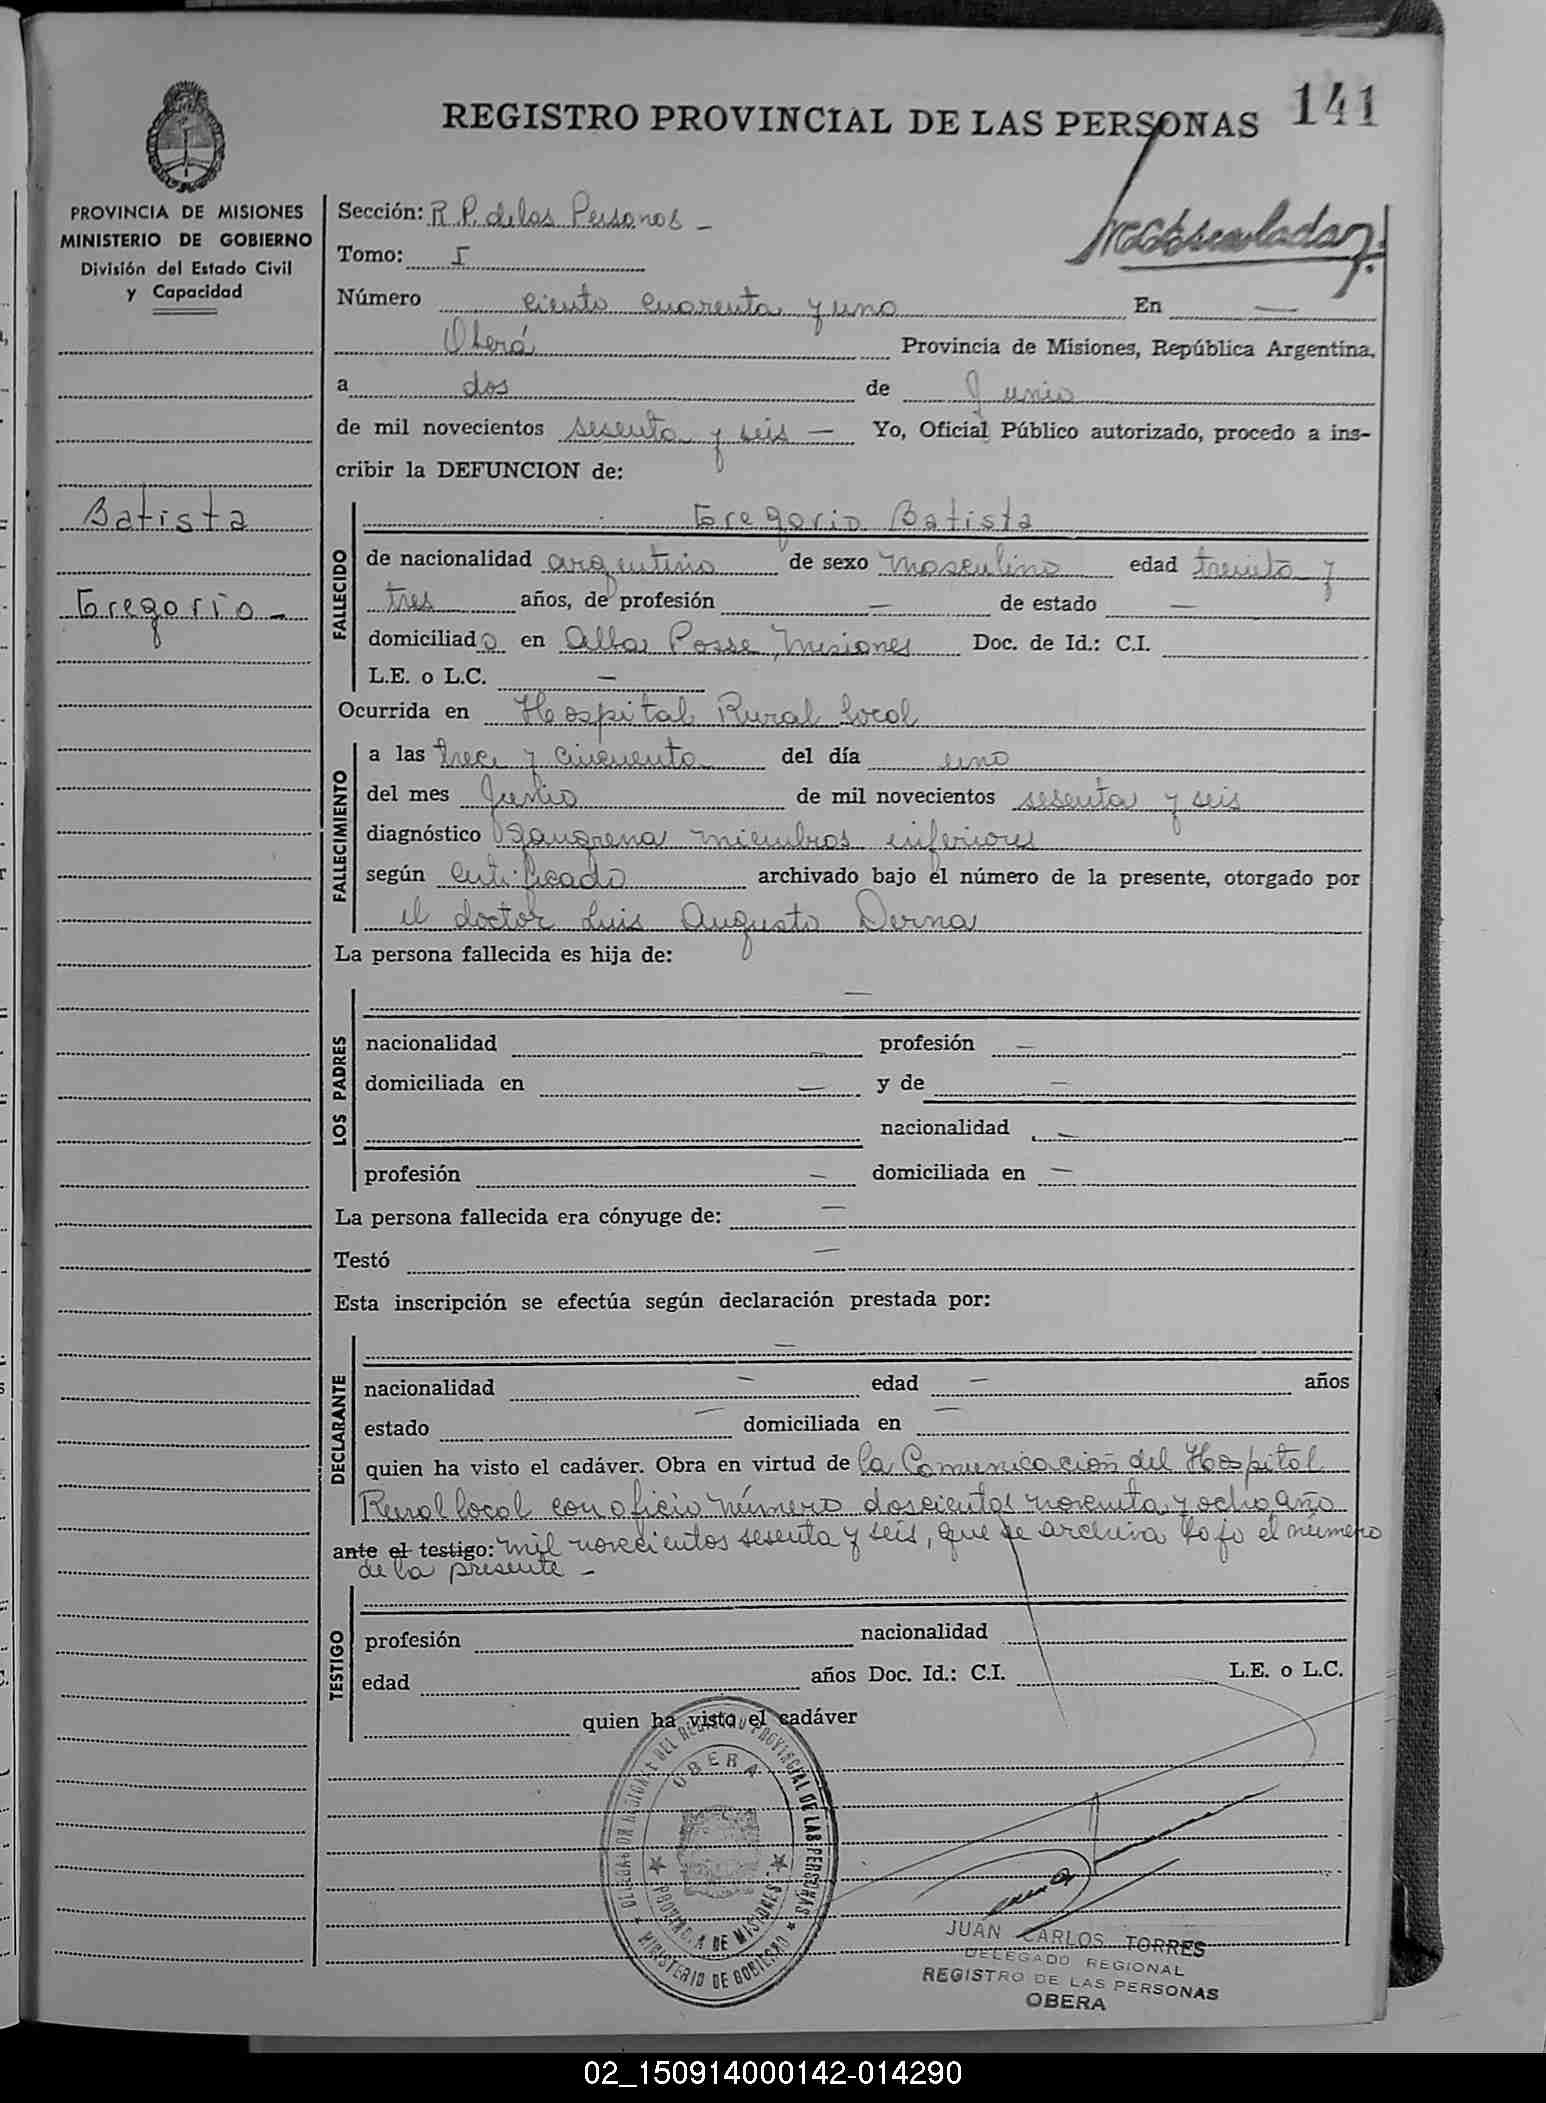 141
REGISTRO PROVINCIAL DE LAS PERSONAS
PROVINCIA DE MISIONES
MINISTERIO DE GOBIERNO
División del Estado Civil
y Capacidad
Batista
Gregorio -
Sección: R. P. de las Personas -
Tomo: I
Número ciento cuarenta y uno En —
Oberá Provincia de Misiones, República Argentina,
a dos de Junio
de mil novecientos sesenta y seis — Yo, Oficial Público autorizado, procedo a ins-
cribir la DEFUNCION de:
FALLECIDO
Gregorio Batista
de nacionalidad argentino de sexo masculino edad treinta y
tres años, de profesión — de estado —
domiciliado en Alba Posse, Misiones Doc. de Id.: C.I.
L.E. o L.C. —
Ocurrida en Hospital Rural local
FALLECIMIENTO
a las trece y cincuenta del día uno
del mes Junio de mil novecientos sesenta y seis
diagnóstico gangrena miembros inferiores
según certificado archivado bajo el número de la presente, otorgado por
el doctor Luis Augusto Derna
La persona fallecida es hija de:
LOS PADRES
—
nacionalidad — profesión —
domiciliada en — y de —
nacionalidad —
profesión — domiciliada en —
La persona fallecida era cónyuge de: —
Testó —
Esta inscripción se efectúa según declaración prestada por:
DECLARANTE
—
nacionalidad — edad — años
estado — domiciliada en —
quien ha visto el cadáver. Obra en virtud de la Comunicación del Hospital
Rural local con oficio número doscientos noventa y ocho año
ante el testigo: mil novecientos sesenta y seis, que se archiva bajo el número
de la presente -
TESTIGO
profesión nacionalidad
edad años Doc. Id.: C.I. L.E. o L.C.
quien ha visto el cadáver
DELEGACION REGIONAL DEL REGISTRO PROVINCIAL DE LAS PERSONAS
OBERA
PROVINCIA DE MISIONES
MINISTERIO DE GOBIERNO
JUAN CARLOS TORRES
DELEGADO REGIONAL
REGISTRO DE LAS PERSONAS
OBERA
02_150914000142-014290